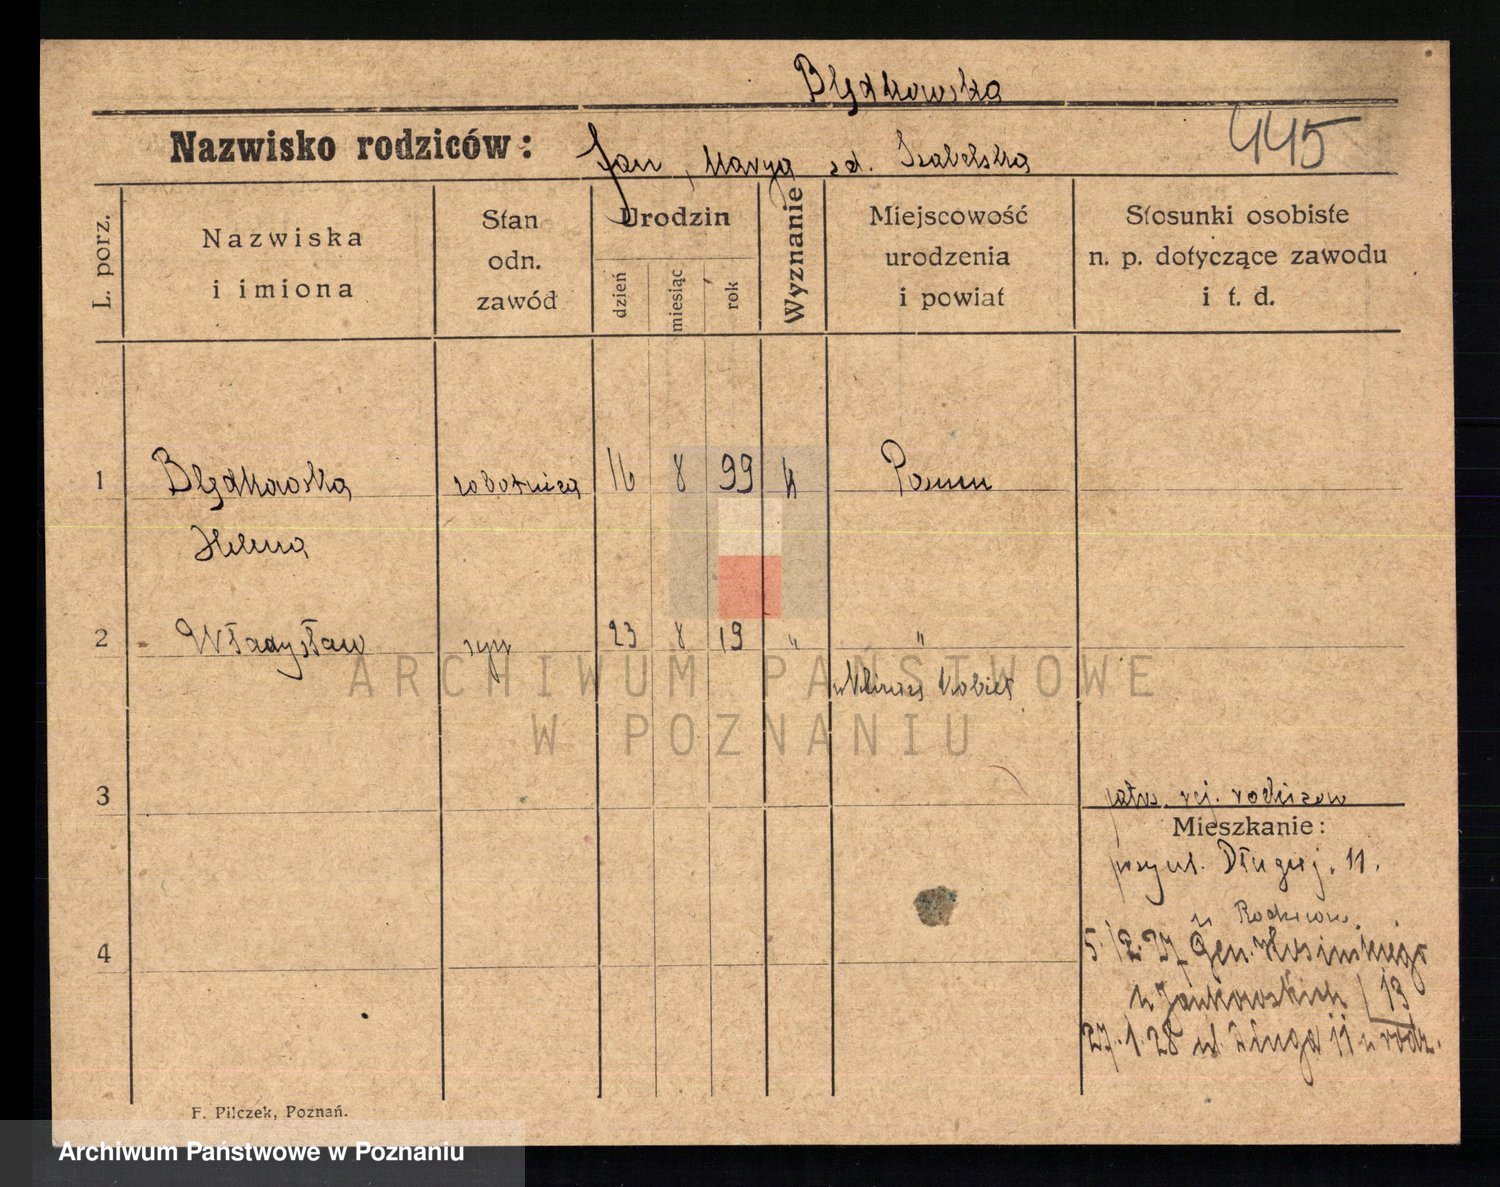 Błędkowska
Nazwisko rodziców: Jan, Marya zd. Izabelska
445
L. porz.
Nazwiska
i imiona
Stan
odn.
zawód
Urodzin
dzień
miesiąc
rok
Wyznanie
Miejscowość
urodzenia
i powiat
Stosunki osobiste
n. p. dotyczące zawodu
i t. d.
1 Błędkowska robotnica 16 8 99 k Poznań
Helena
2 - Władysław syn 23 8 19 " "
Kobiet
3
rej. rodziców
Mieszkanie:
przy ul. Długiej. 11.
u Rodziców.
4
5./2.27 Gen. Kosińskiego
u Jankowskich 13
27.1.28 ul. Długa 11 u rodz.
F. Pilczek, Poznań.
ARCHIWUM PAŃSTWOWE
W POZNANIU
Archiwum Państwowe w Poznaniu